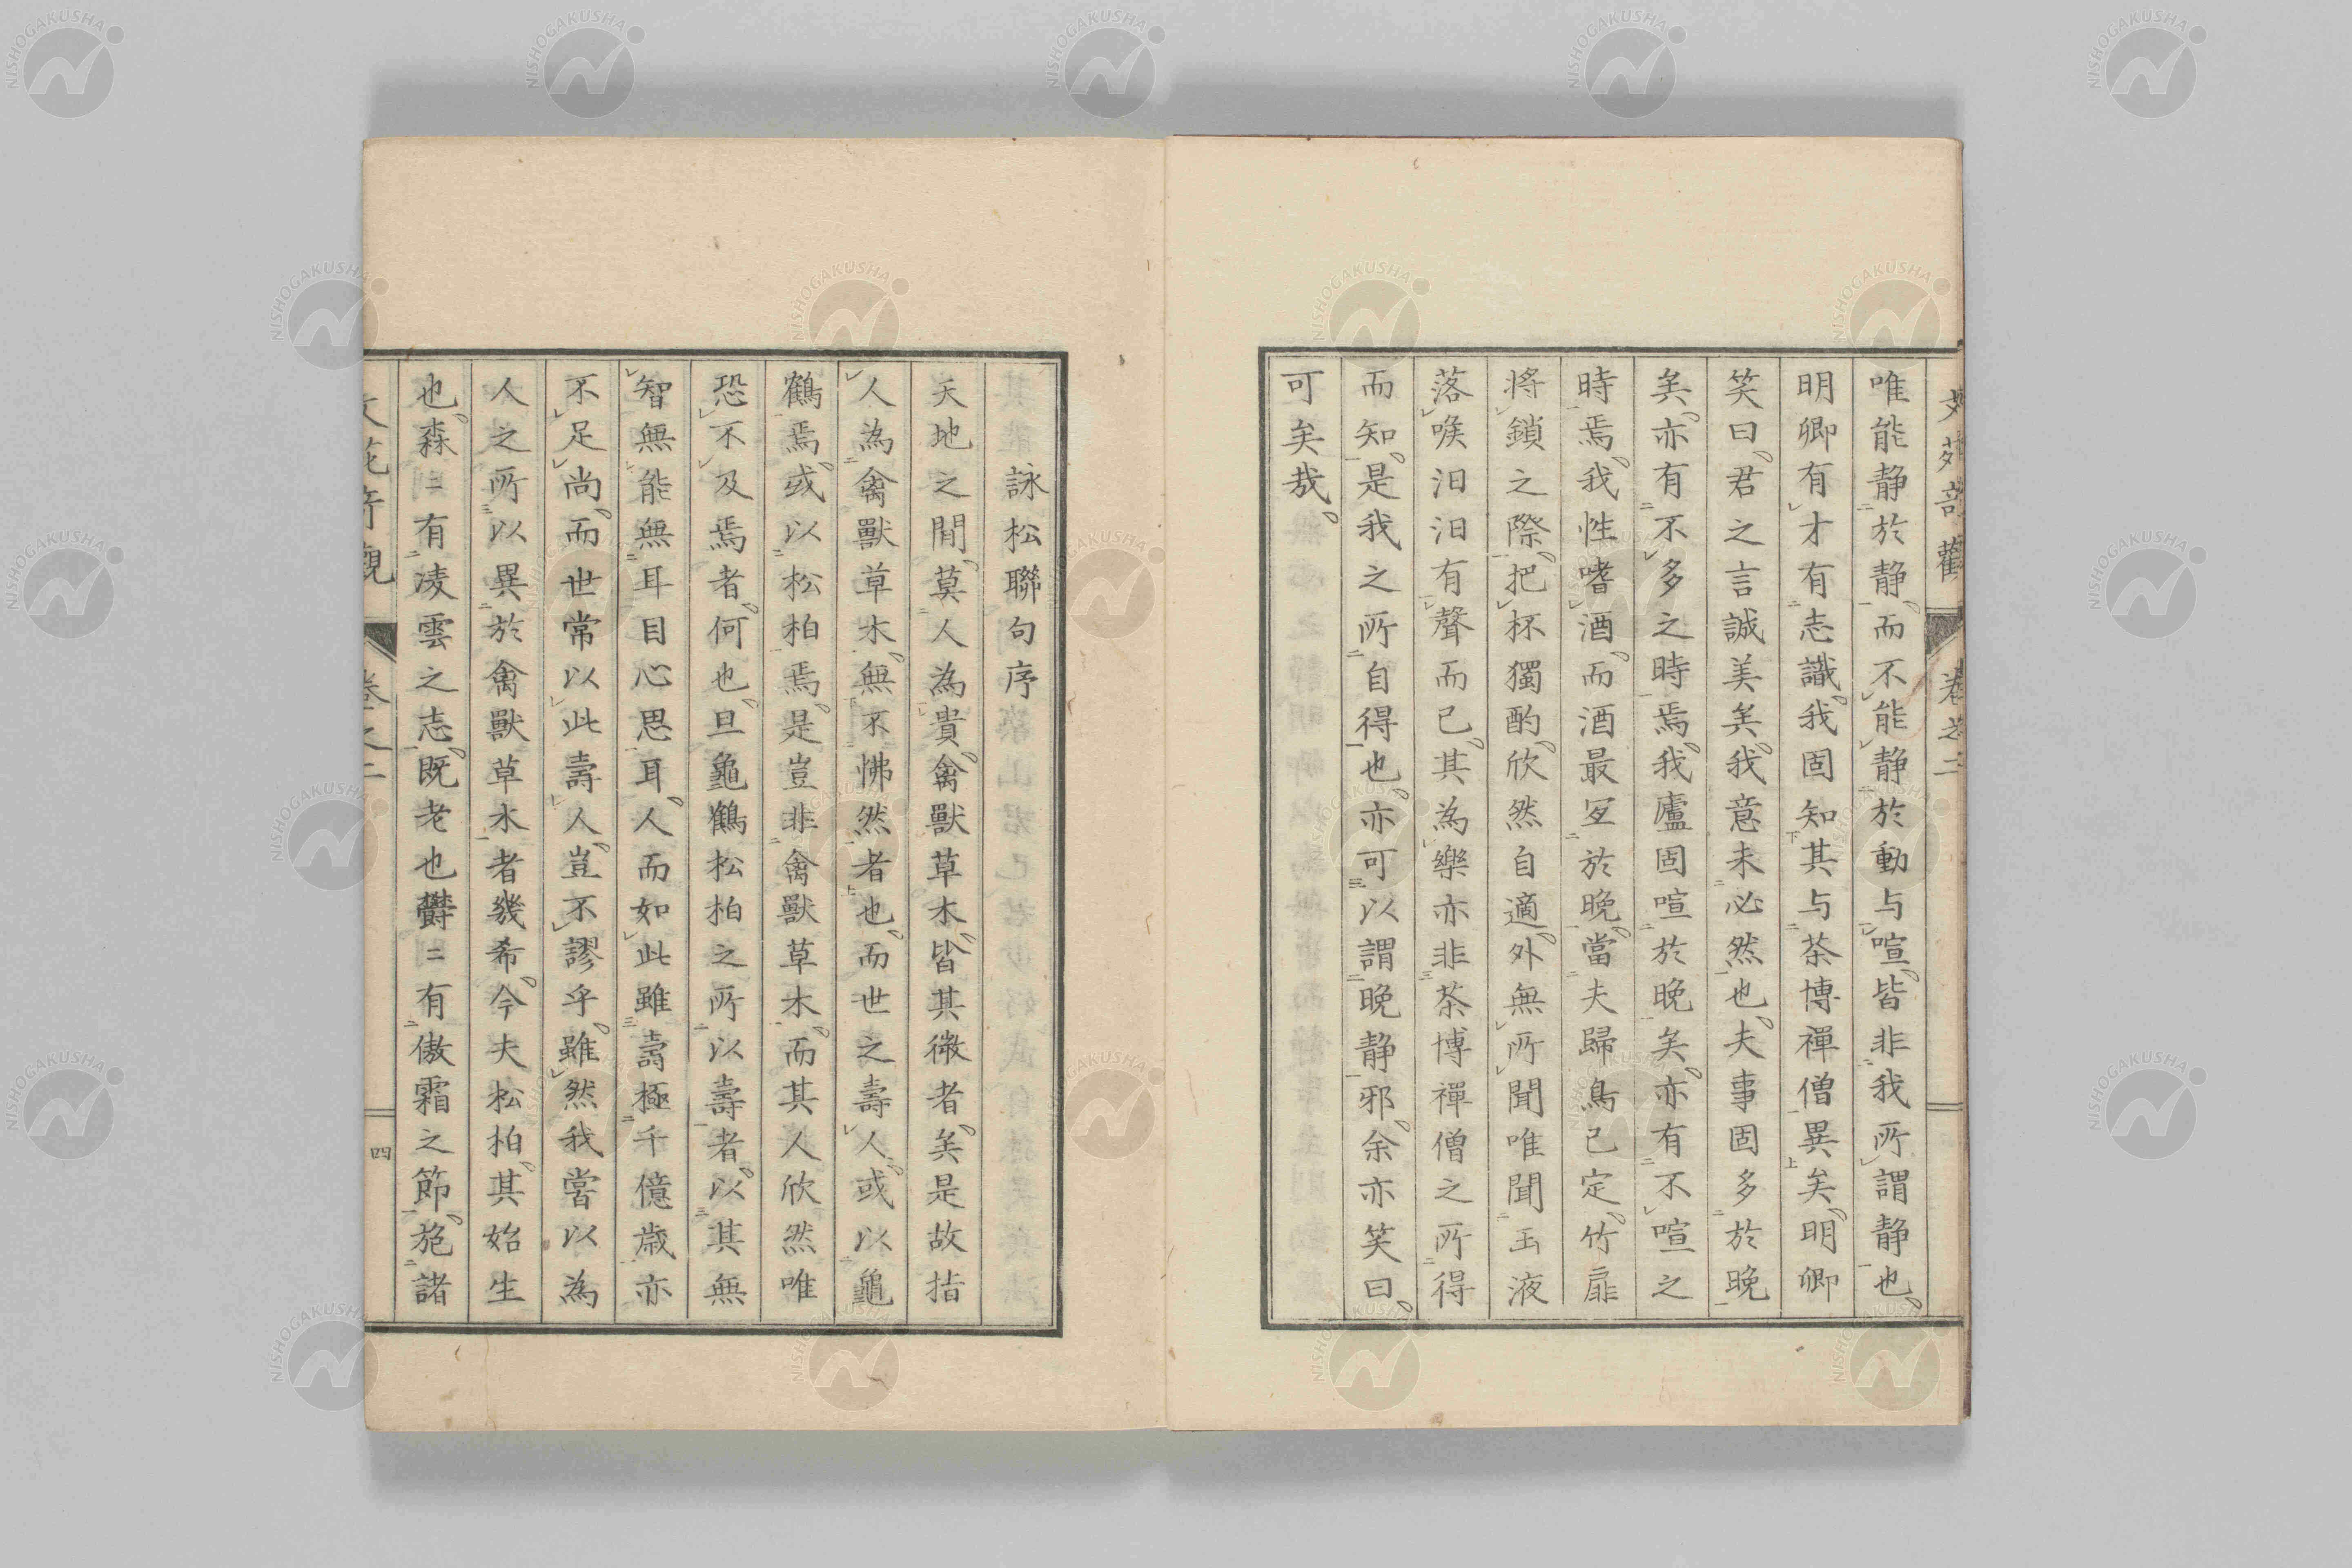 唯能静於静而不能静於動与喧皆非我所謂静也
明卿有才有志識我固知其与茶博禪僧異矣明卿
笑曰君之言誠美矣我意未必然也夫事固多於晚
矣亦有不多之時焉我廬固喧於晚矣亦有不喧之
時焉我性嗜酒而酒最宜於晚當夫歸鳥已定竹扉
将鎖之際把杯獨酌欣然自適外無所聞唯聞玉液
落喉汩汩有聲而已其為樂亦非茶博禪僧之所得
而知是我之所自得也亦可以謂晚静邪余亦笑曰
可矣哉
詠松聯句序
天地之間莫人為貴禽獸草木皆其微者矣是故指
人為禽獸草木無不怫然者也而世之壽人或以龜
鶴焉或以松柏焉是豈非禽獸草木而其人欣然唯
恐不及焉者何也且龜鶴松柏之所以壽者以其無
智無能無耳目心思耳人而如此雖壽極千億歳亦
不足尚而世常以此壽人豈不謬乎雖然我嘗以為
人之所以異於禽獸草木者幾希今夫松柏其始生
也森〻有凌雲之志既老也欝〻有傲霜之節施諸
卷之二
四
NISHOGAKUSHA